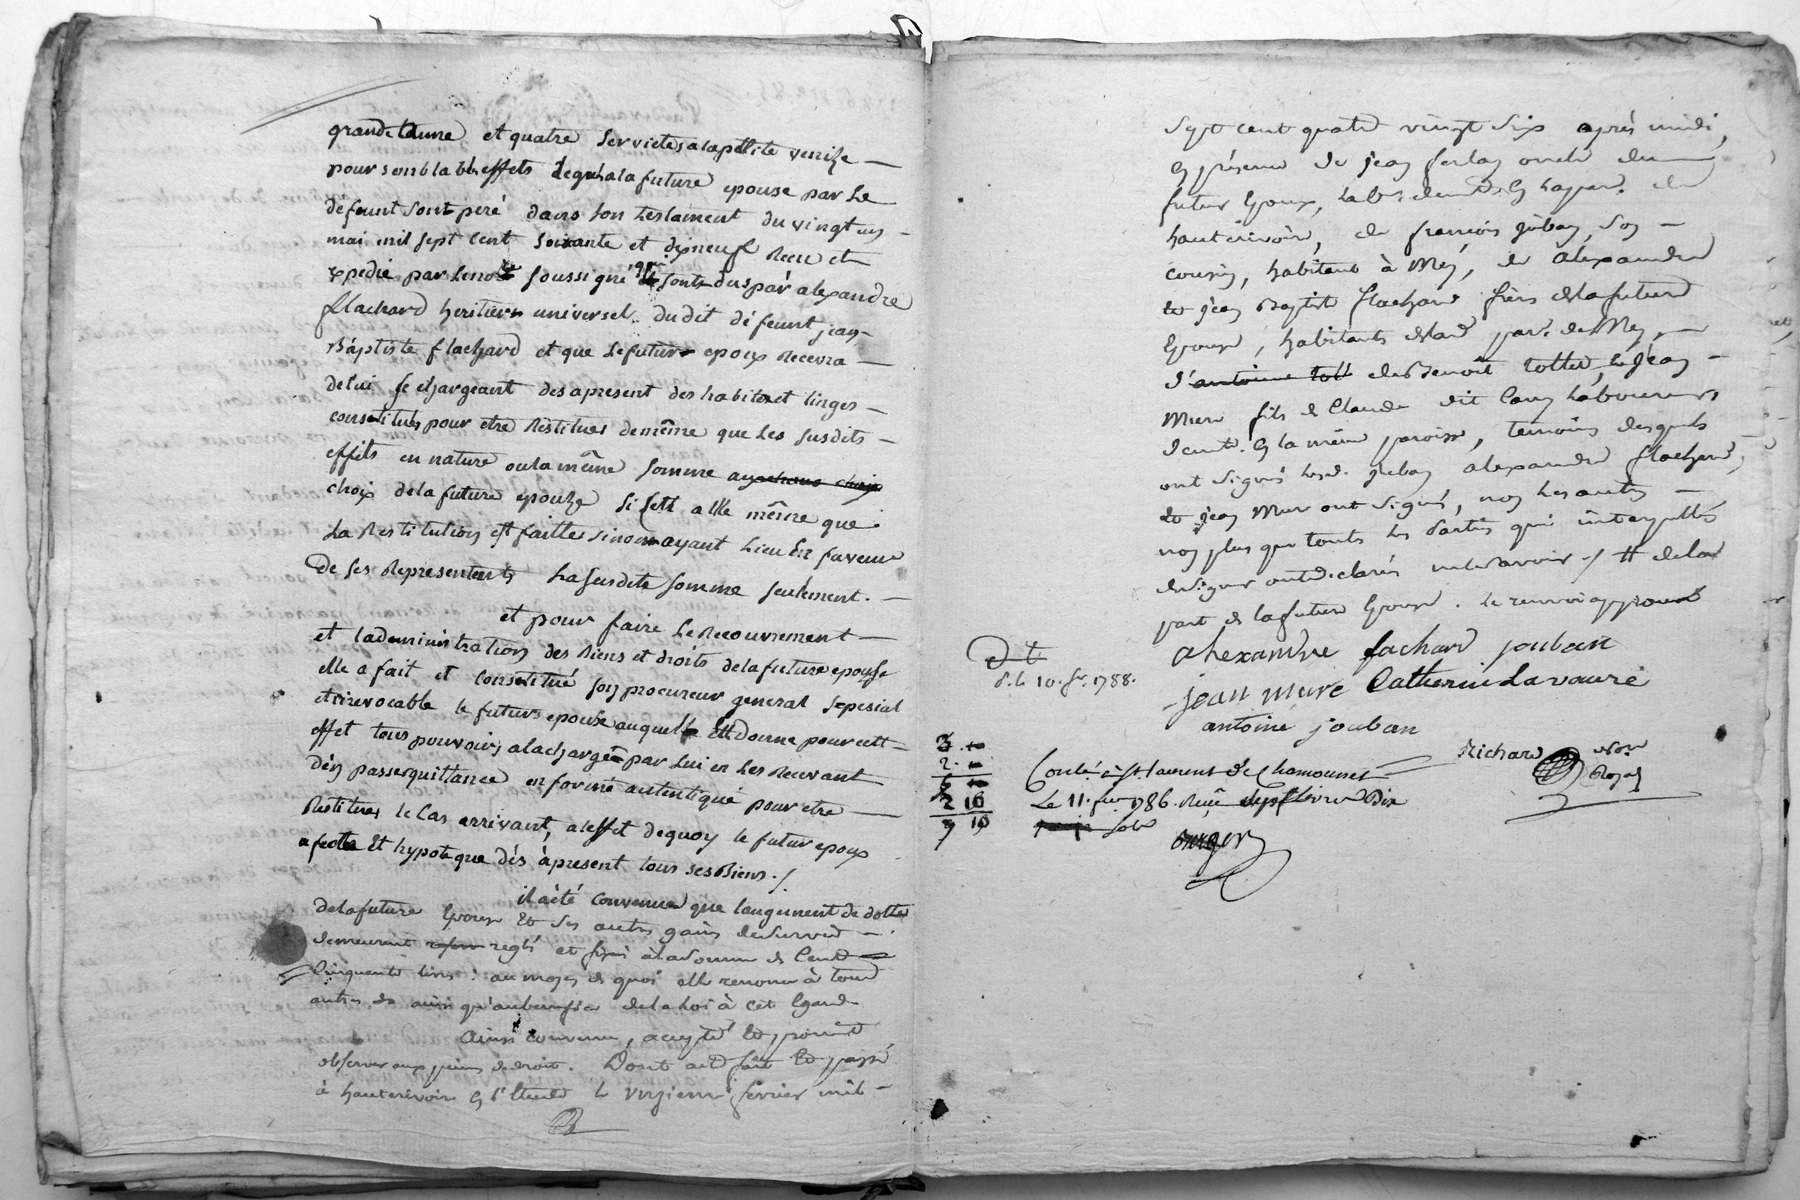 grande Laune et quatre serviettes a la petitte venize
pour semblables effets legués a la future epouse par Le
defeunt sont peré dans son testament du vingt un
mai mil sept cent soixante et dixneuf Receu et
expedié par Le not.re soussigné qui sont dus par alexandre
flachard heritier universel dudit défeunt jean
Baptiste flachard et que Le futur epoux Recevra
de lui se chargeant des apresent des habits et linges
constitués pour etre Restitués de même que Les susdits
effets en nature ou la même somme au choix
choix de la future epouze si s'est alle même que
La Restitution est faitte sinom ayant Lieu En faveur
De ses Representents La susdite somme seulement.
et pour faire Le Recouvrement
et Ladministration des Biens et droits de la future epouse
elle a fait et constitué son procureur general sepesial
et irrevocable le futur epoux auquel Elle Donne pour cett
effet tous pouvoirs a la chargée par Lui en Les Recevant
D'en passer quittance en forme autentique pour etre
Restitués le Cas arrivant, a leffet de quoy le futur epoux
afecte Et hypoteque dés àpresent tous ses Biens ./.
il a été convenue que laugument de dotte
de la future Epouse Et ses autres gains de survie
demeurent reglés et fixés à la somme de Cent
Cinquante livres: au moyen de quoi elle renonce à tous
autres ainsi qu'au benefice de la Loi à cet Egard
Ainsi convenu, accepté Et promit
observer aux peines de droit. Dont acte fait Et passé
à hauterivoire En l'Etude Le onzieme fevrier mil
sept cent quatre vingt six après midi,
En présence de jean ferlay oncle du
futur Epoux, Lab.r demt.
hauterivoire, de francois jubany son
cousin, habitant à Mey, de alexandre
Et jean Baptiste flachard freres de la future
Epouse, habitants de lad. par. de Mey,
d'antoine toll de Benoît tollet, Et jean
Mure fils de Claude dit Cany Laboureurs
demt. En la même paroisse, temoins desquels
ont signés Lesd. jubany alexandre flachard,
Et jean Mure ont signés, non Les autres
non plus que toutes Les Parties qui interpellés
de signer ont déclarés ne le savoir ./. # de la
part de la future Epouse. Le renvoi approuvé
alexandre fachard jouban
jean mure Catherine Lavaure
antoine jouban
Richard not.re Royal
d. le 10. fr. 1788.
3.
2.
2 10
7 10
Conlé à St. laurent de Chamousset
Le 11. fer 1786. Reçu sept livres Dix
sols